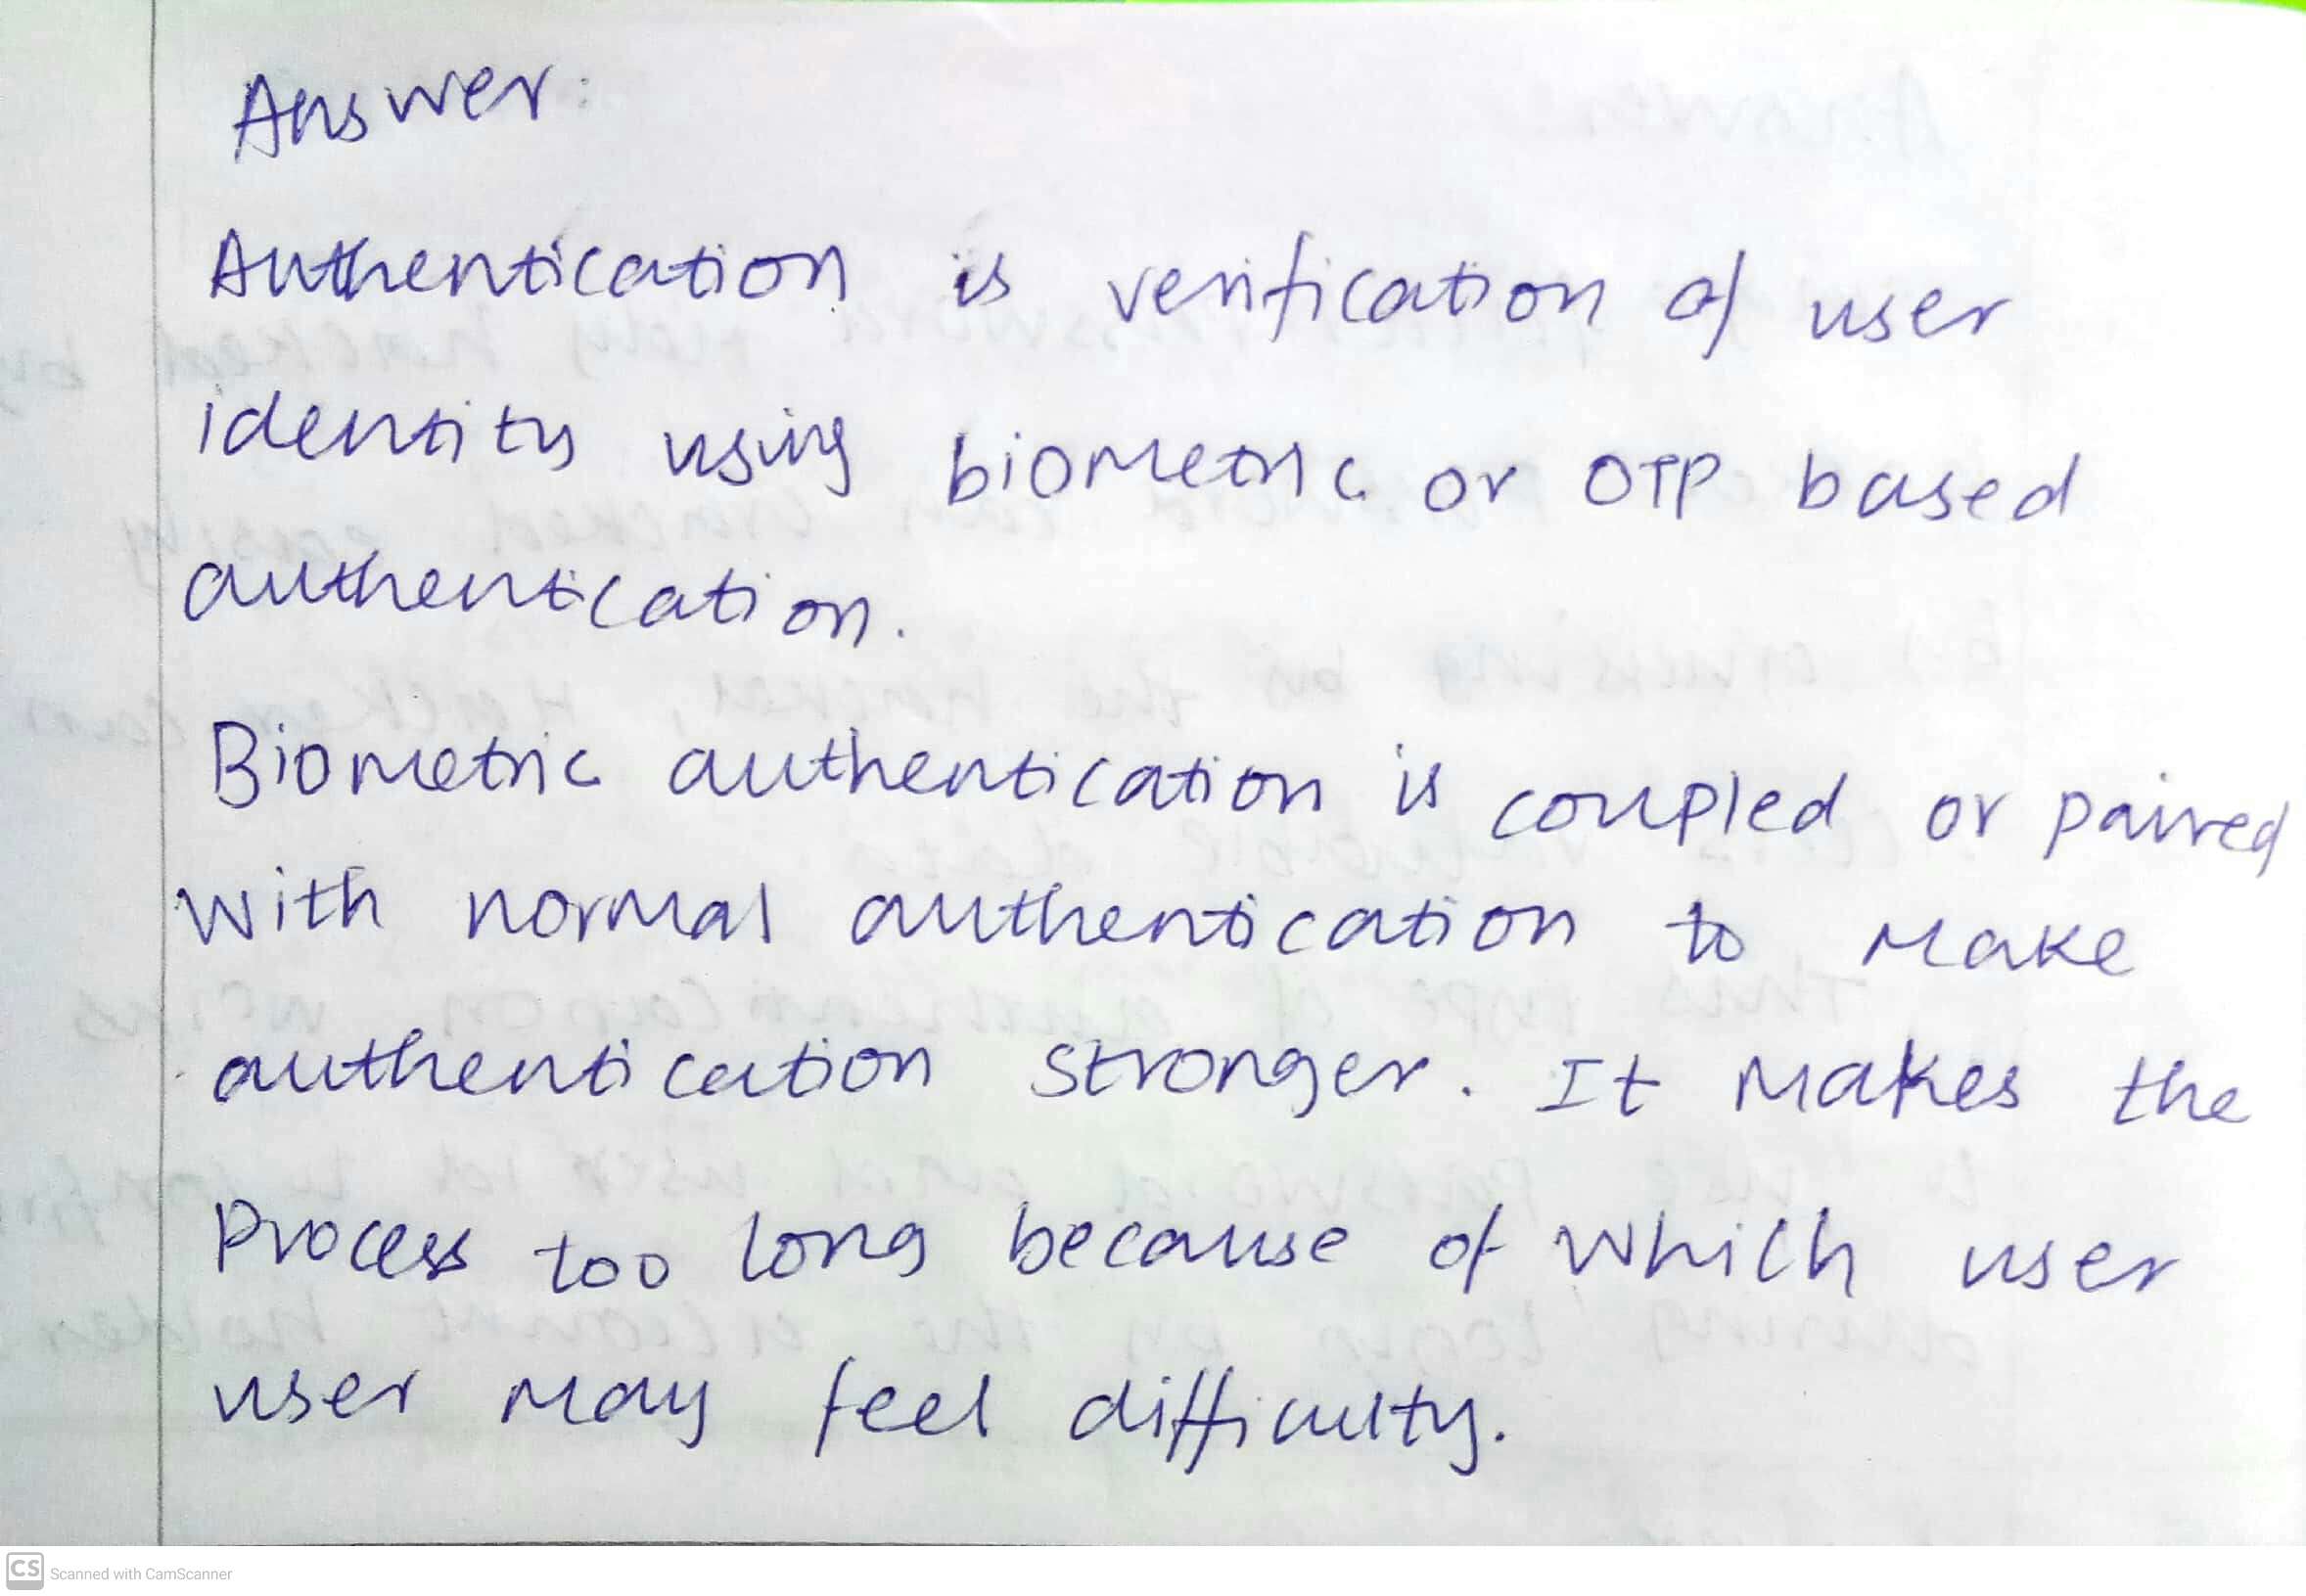 Answer:
Authentication is verification of user
identity using biometric or OTP based
authentication.
Biometric authentication is coupled or paired
with normal authentication to make
authentication stronger. It makes the
Process too long because of which user
user may feel difficulty.
CS Scanned with CamScanner